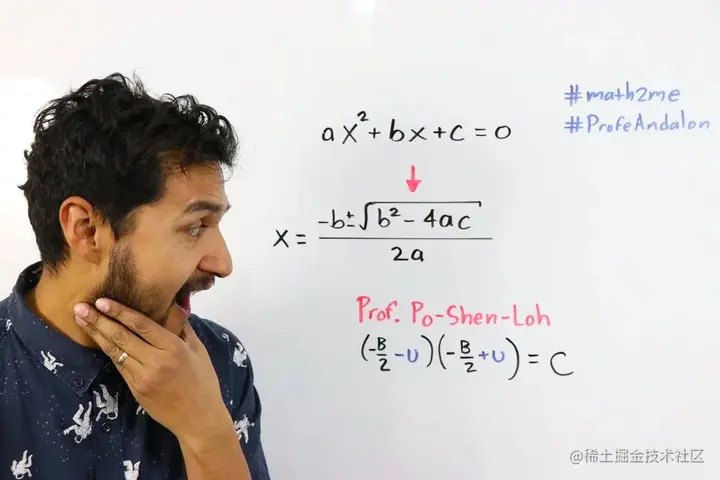 #math2me
#ProfeAndalon
ax²+bx+c=0
x = (-b±√(b²-4ac))/(2a)
Prof. Po-Shen-Loh
(-B/2-U)(-B/2+U)=C
@稀土掘金技术社区